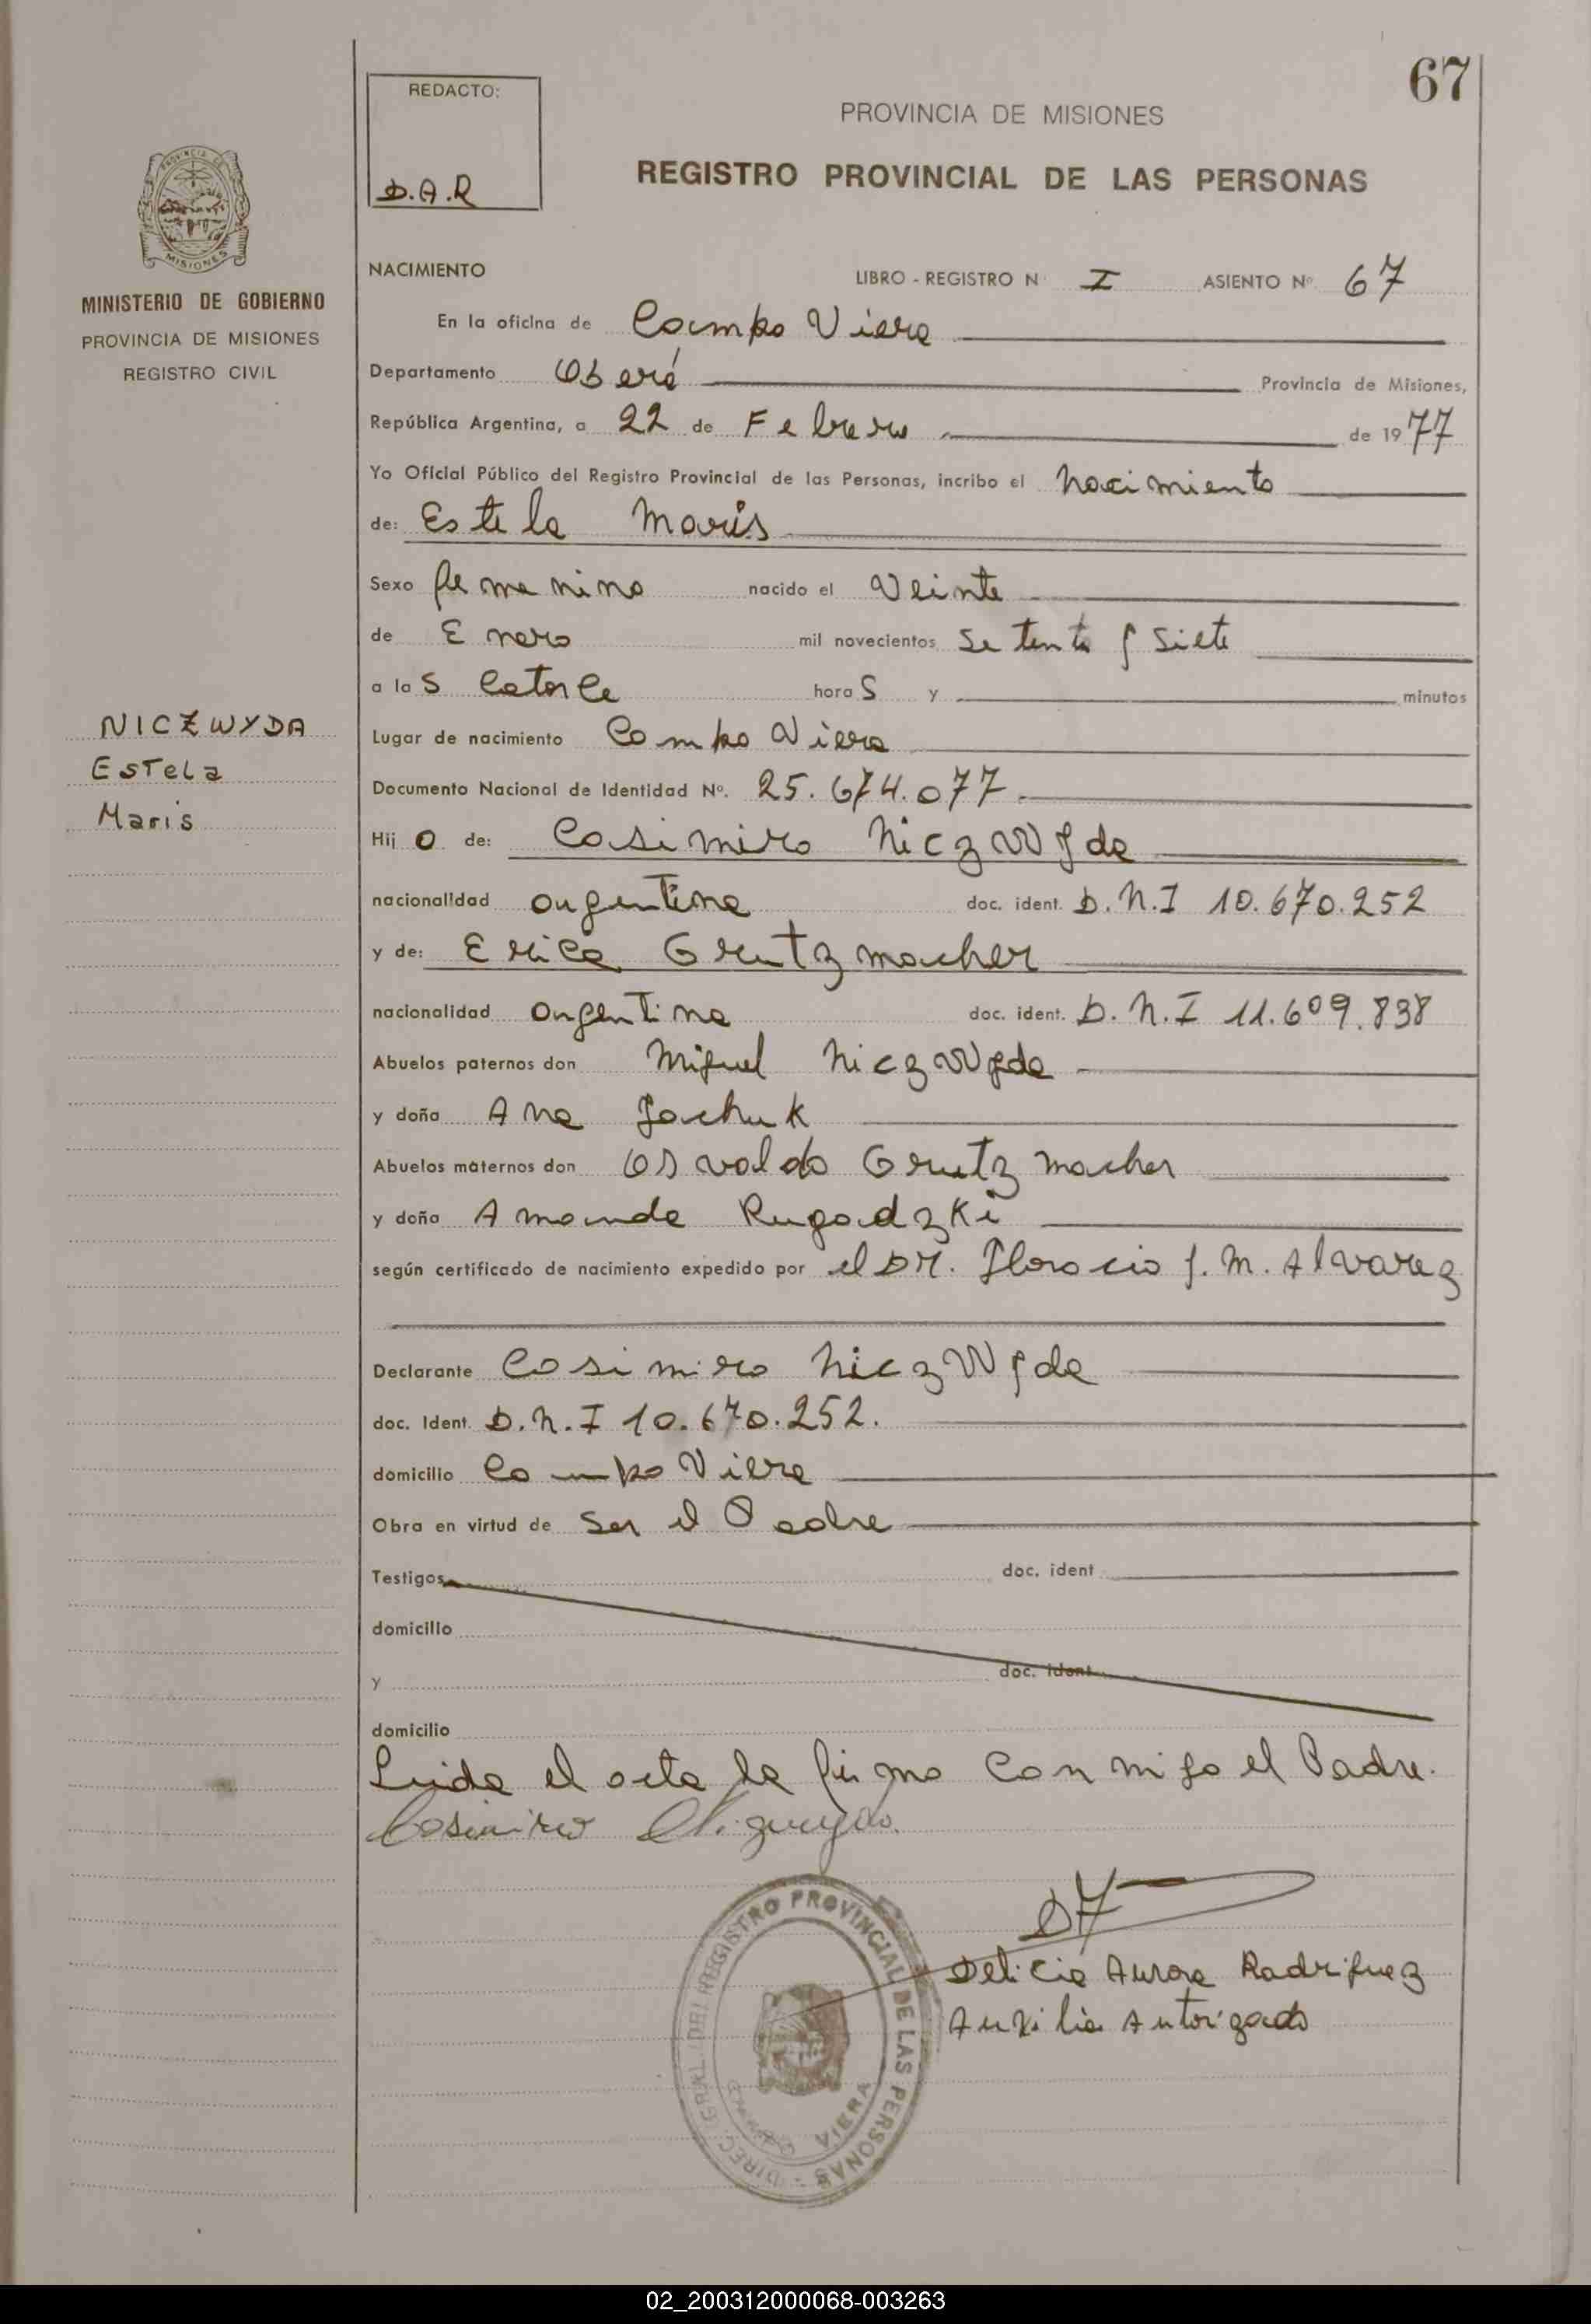 67
REDACTO:
D.A.R
PROVINCIA DE MISIONES
REGISTRO PROVINCIAL DE LAS PERSONAS
PROVINCIA DE
MISIONES
MINISTERIO DE GOBIERNO
PROVINCIA DE MISIONES
REGISTRO CIVIL
NICZWYDA
Estela
Maris
NACIMIENTO LIBRO - REGISTRO N I ASIENTO Nº 67
En la oficina de Campo Viera
Departamento Oberá Provincia de Misiones,
República Argentina, a 22 de Febrero de 1977
Yo Oficial Público del Registro Provincial de las Personas, incribo el nacimiento
de: Estela Maris
Sexo femenino nacido el Veinte
de Enero mil novecientos setenta y siete
a las catorce horas y minutos
Lugar de nacimiento Campo Viera
Documento Nacional de Identidad Nº. 25.674.077
Hijo de: Casimiro Niczwyda
nacionalidad argentina doc. ident. D.N.I 10.670.252
y de: Erica Grutzmacher
nacionalidad argentina doc. ident. D.N.I 11.609.838
Abuelos paternos don Miguel Niczwyda
y doña Ana Jachuk
Abuelos maternos don Osvaldo Grutzmacher
y doña Amanda Rugadzki
según certificado de nacimiento expedido por el DR. Horacio J. M. Alvarez
Declarante Casimiro Niczwyda
doc. Ident. D.N.I 10.670.252.
domicilio Campo Viera
Obra en virtud de ser el Padre
Testigos doc. ident
domicilio
y doc. ident
domicilio
Leida el acta la firma conmigo el Padre.
Casimiro
DIREC. GRAL. DEL REGISTRO PROVINCIAL DE LAS PERSONAS
CAMPO VIERA
Delicia Aurora Rodriguez
Auxiliar Autorizado
02_200312000068-003263